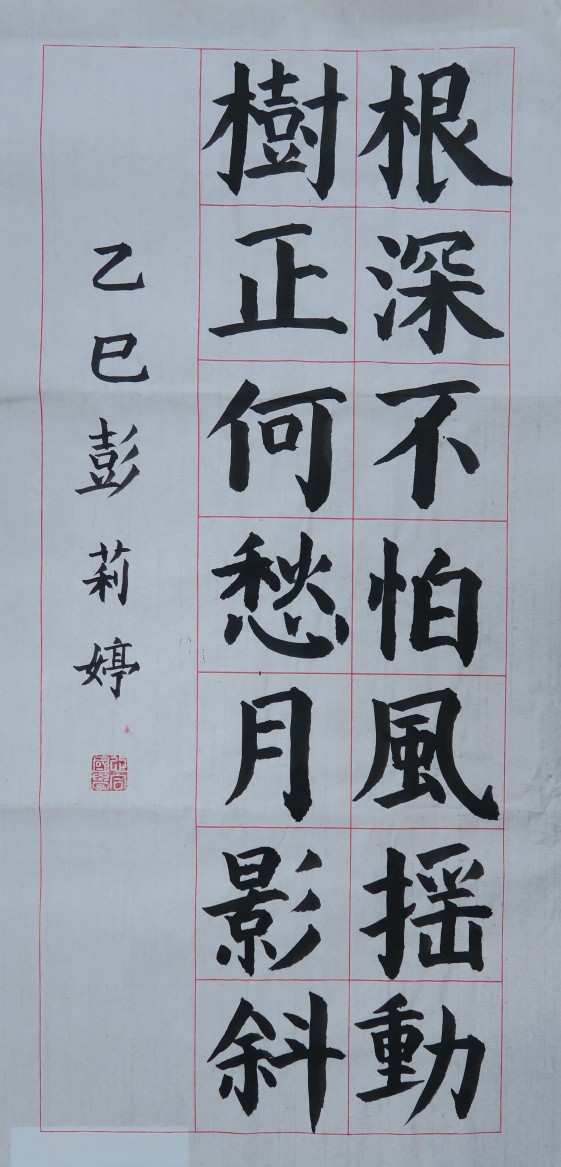 根深不怕風摇動
樹正何愁月影斜
乙巳彭莉婷